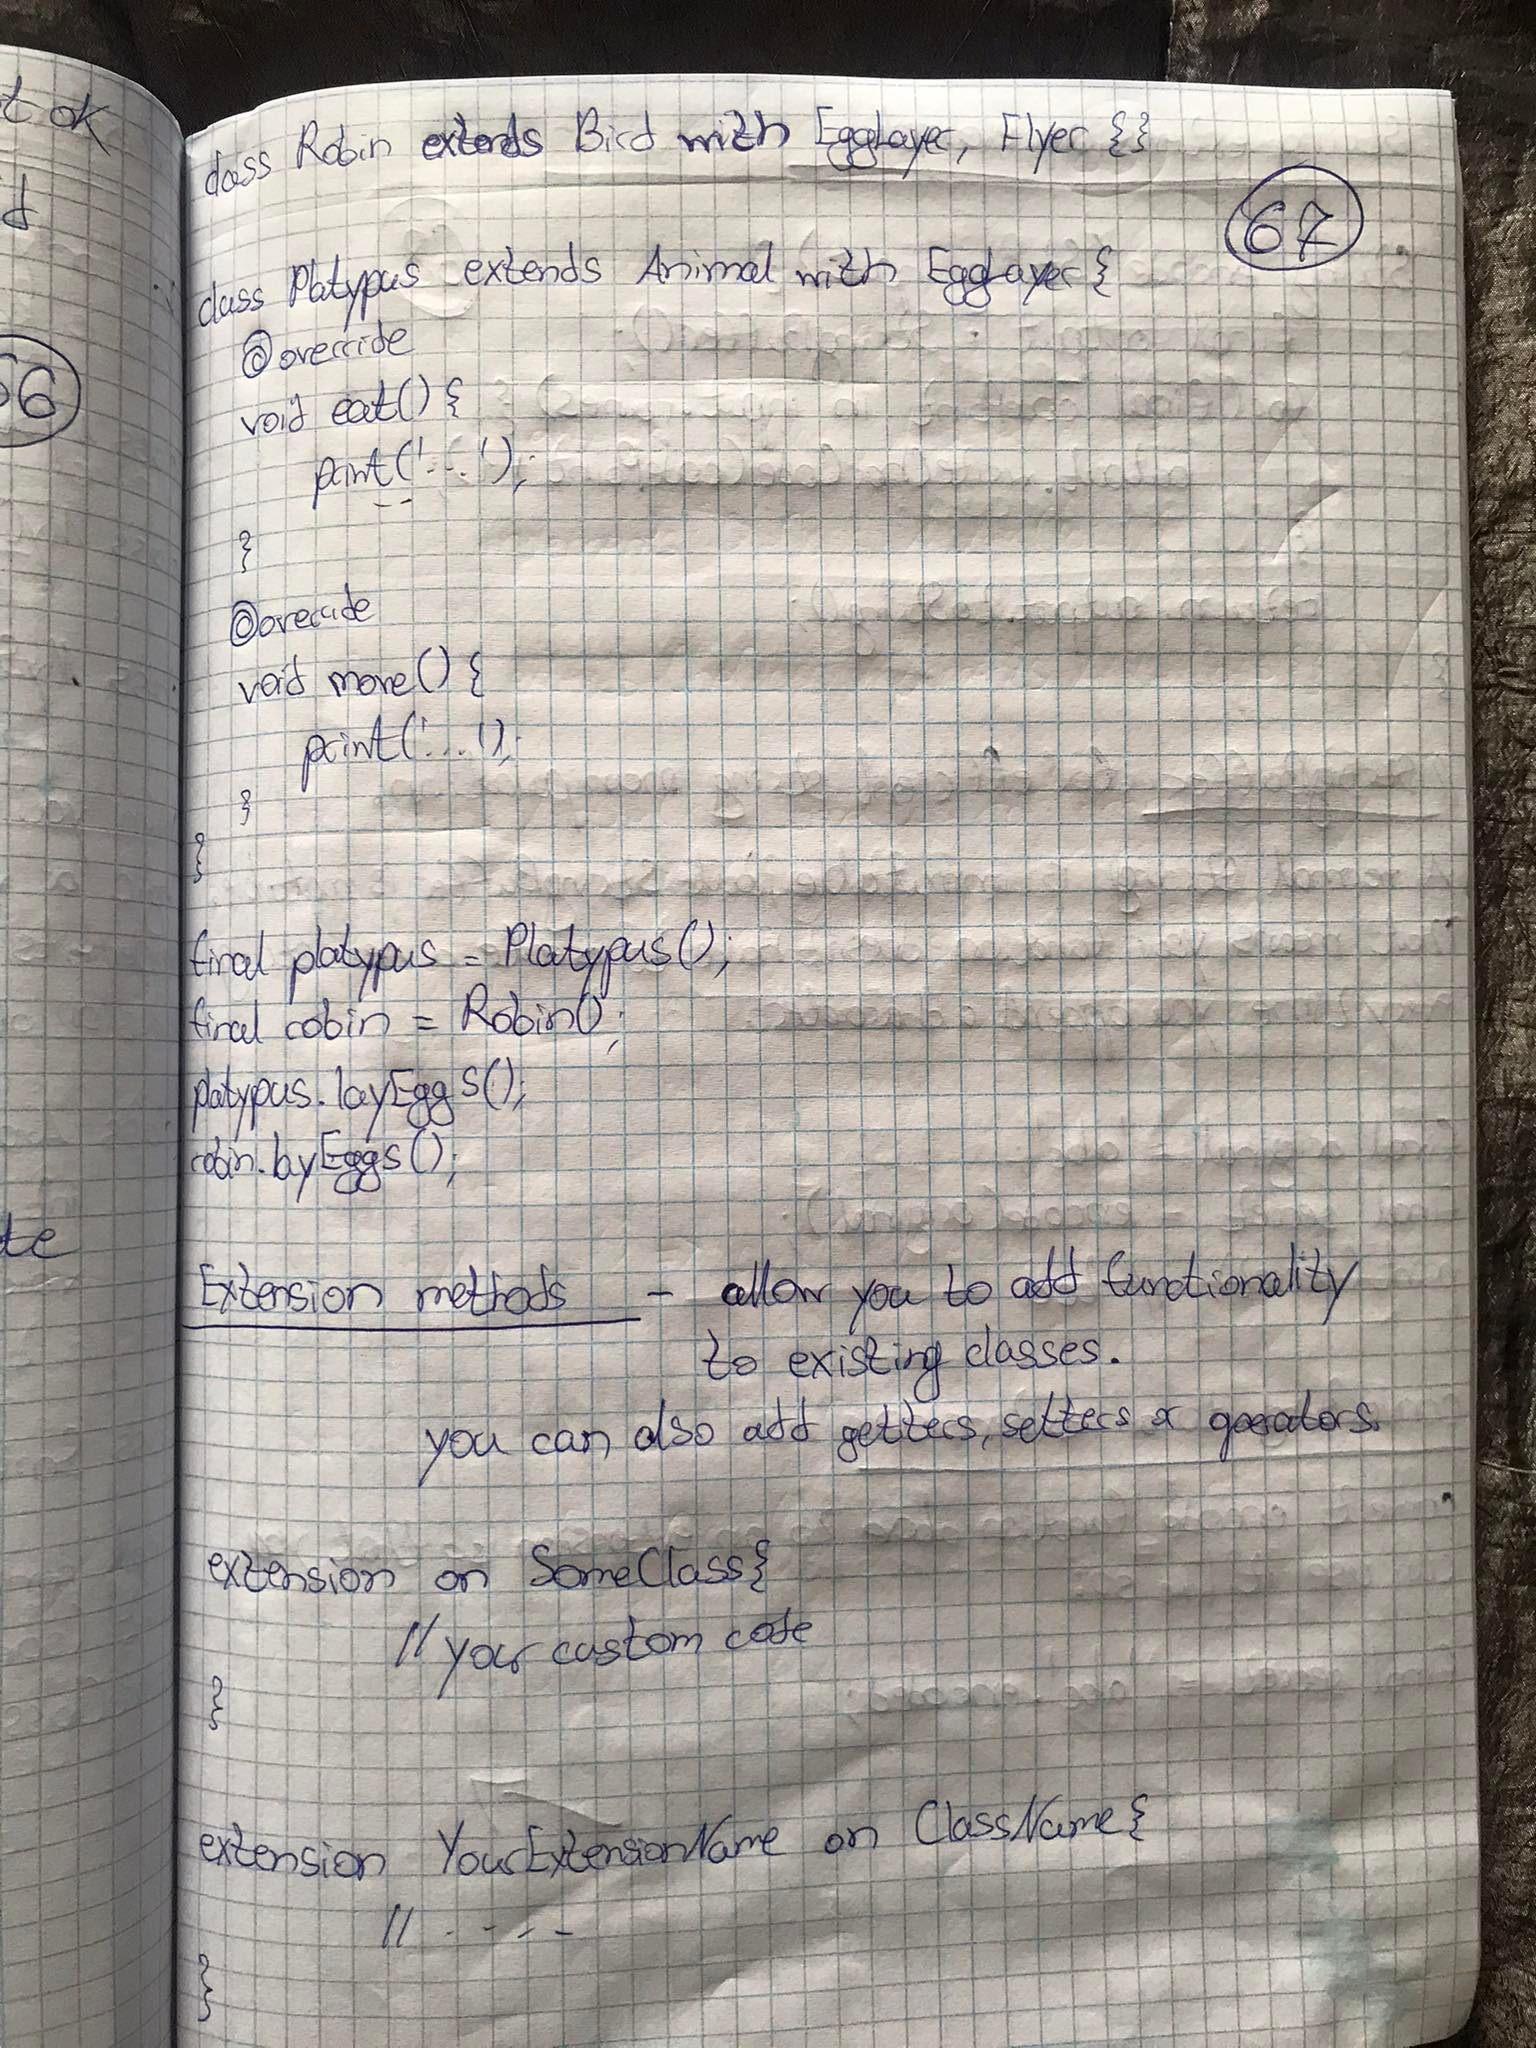 t ok
d
56
te
class Robin extends Bird with EggLayer, Flyer {}
67
class Platypus extends Animal with EggLayer {
@override
void eat() {
print('...');
}
@override
void move() {
print('...');
}
}
final platypus = Platypus();
final robin = Robin();
platypus.layEggs();
robin.layEggs();
Extension methods - allow you to add functionality
to existing classes.
you can also add getters, setters & operators.
extension on SomeClass{
// your custom code
}
extension YourExtensionName on ClassName {
// ....
}